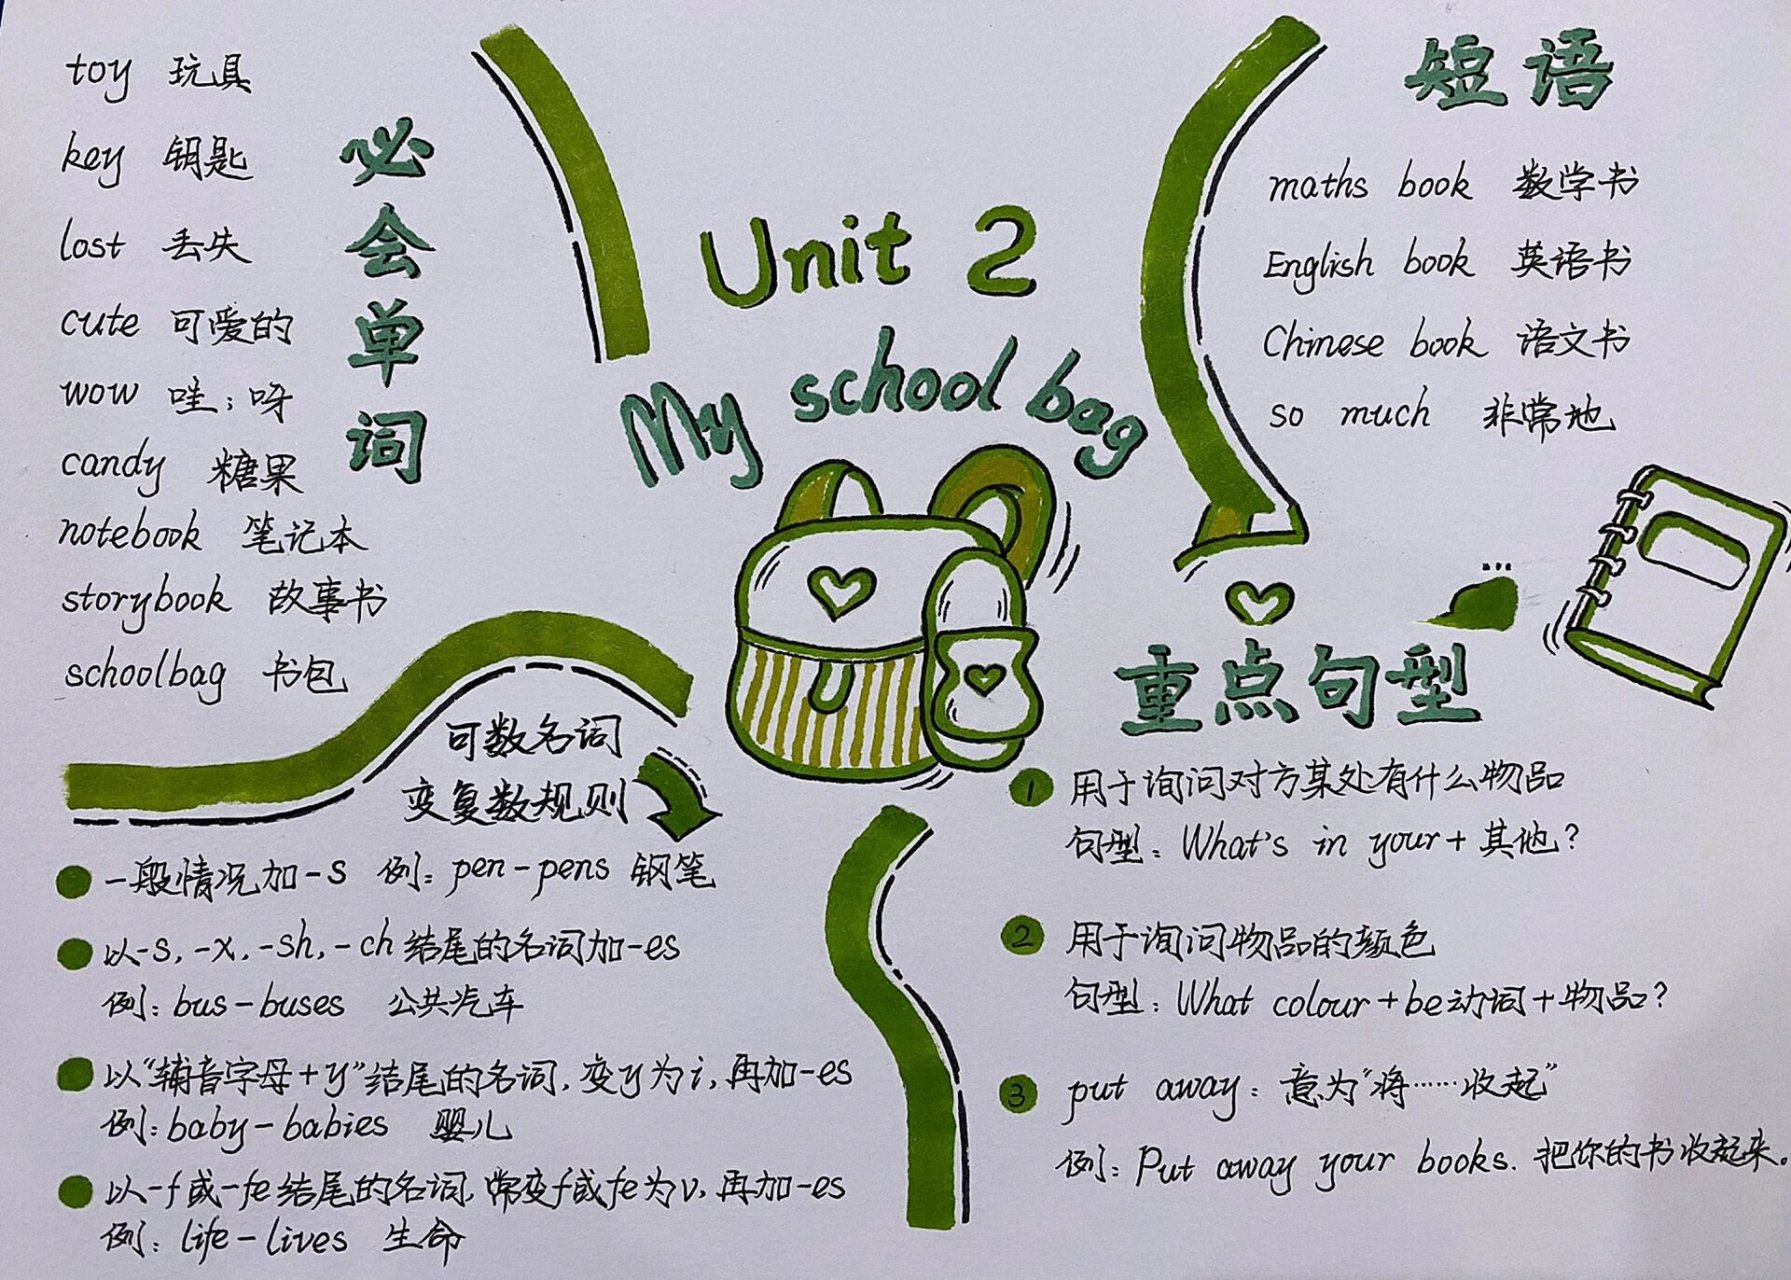 toy 玩具
key 钥匙
lost 丢失
cute 可爱的
wow 哇；呀
candy 糖果
notebook 笔记本
storybook 故事书
schoolbag 书包
必会单词
Unit 2
My school bag
短语
maths book 数学书
English book 英语书
Chinese book 语文书
so much 非常地
可数名词
变复数规则
一般情况加-s 例：pen-pens 钢笔
以-s, -x, -sh, -ch结尾的名词加-es
例：bus-buses 公共汽车
以“辅音字母+y”结尾的名词，变y为i，再加-es
例：baby-babies 婴儿
以-f或-fe结尾的名词，常变f或fe为v，再加-es
例：life-lives 生命
重点句型
1 用于询问对方某处有什么物品
句型：What's in your+其他？
2 用于询问物品的颜色
句型：What colour+be动词+物品？
3 put away：意为“将……收起”
例：Put away your books. 把你的书收起来。